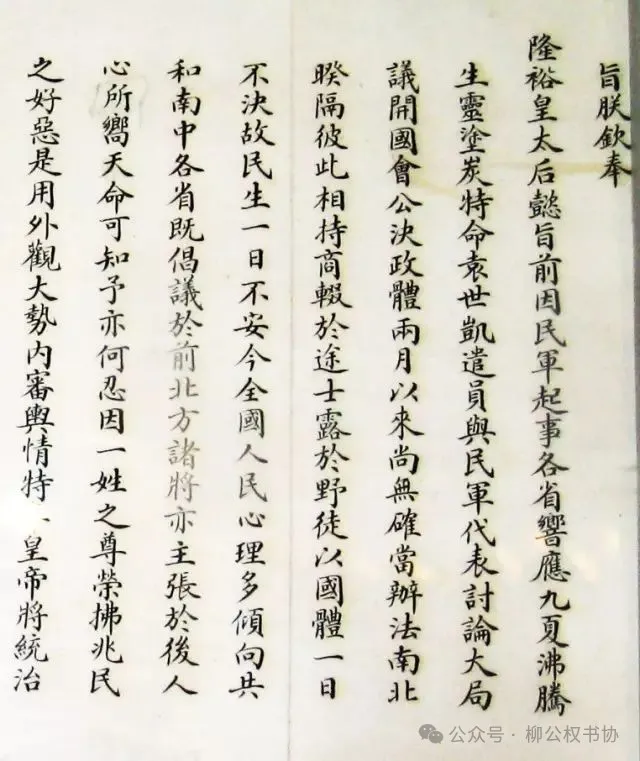 旨朕欽奉
隆裕皇太后懿旨前因民軍起事各省響應九夏沸騰
生靈塗炭特命袁世凱遣員與民軍代表討論大局
議開國會公決政體兩月以來尚無確當辦法南北
暌隔彼此相持商輟於途士露於野徒以國體一日
不決故民生一日不安今全國人民心理多傾向共
和南中各省既倡議於前北方諸將亦主張於後人
心所嚮天命可知予亦何忍因一姓之尊榮拂兆民
之好惡是用外觀大勢內審輿情特皇帝將統治
公众号·柳公权书协